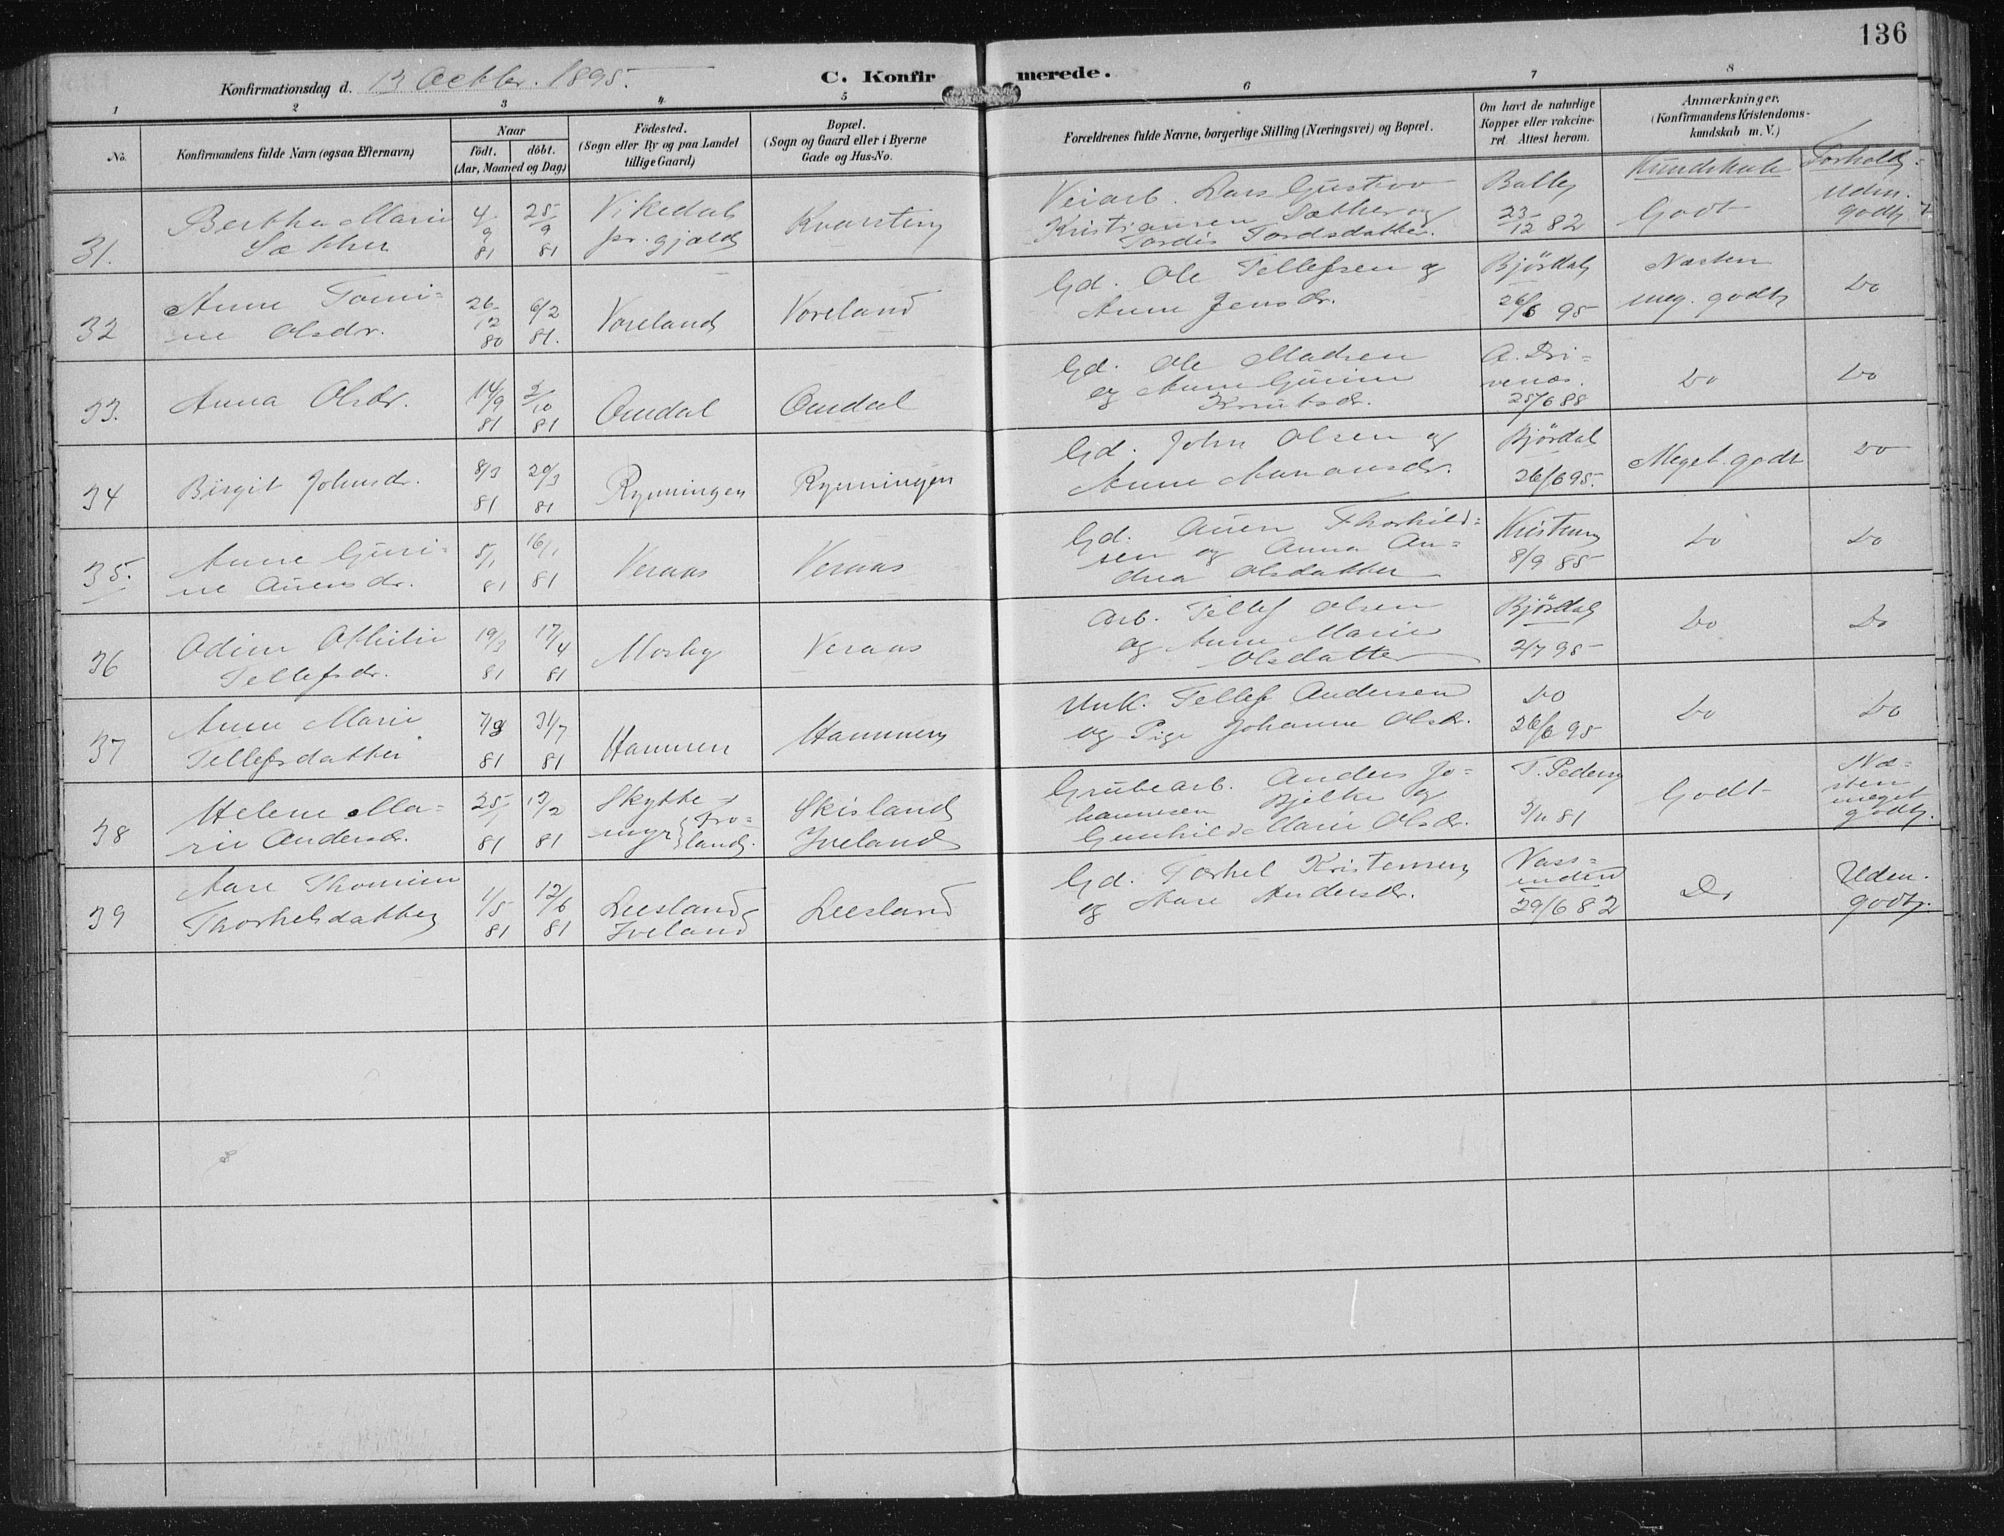 136
Konfirmationsdag d. 13 Octbr. 1895.
C. Konfirmerede.
1 2 3 4 5 6 7 8
No.
Konfirmandens fulde Navn (ogsaa Efternavn)
Naar
födt. döbt.
(Aar, Maaned og Dag)
Födested.
(Sogn eller By og paa Landet
tillige Gaard)
Bopæl.
(Sogn og Gaard eller i Byerne
Gade og Hus-No.
Forældrenes fulde Navne, borgerlige Stilling (Næringsvei) og Bopæl.
Om havt de naturlige
Kopper eller vakcine-
ret Attest herom.
Anmærkninger.
(Konfirmandens Kristendoms-
kundskab m. V.)
Kundskab Forhold
31. Bertha Marie
Sæther
4/9 81
25/9 81
Vikedal
pr.gjæld
Kvarstein
Veiarb. Lars Gustav
Kristiansen Sæther og
Tordis Tordsdatter.
23/12 82
Godt
Uden.
godt
32 Anne Tomi-
ne Olsdr.
26/12 80
6/2 81.
Voreland
Voreland
Gd. Ole Tellefsen og
Anne Jensdr.
Bjørdal
26/6 95
Næsten
meg. godt
Do
33. Anna Olsdr.
14/9 81
2/10 81
Omdal
Omdal
Gd. Ole Madsen
og Anne Gurine
Knutsdr.
A. Dri-
venæs.
25/6 88
Do
Do
34 Birgit Johnsdr.
8/3 81
20/3 81
Rynningen
Rynningen
Gd. John Olsen og
Anne Aanonsdr.
Bjørdal
26/6 95.
Meget godt
Do
35. Anne Guri-
ne Auensdr.
5/1 81
16/1 81
Veraas
Veraas
Gd. Auen Thorkild-
sen og Anna An-
drea Olsdatter
8/9 85
Do
Do
36 Odine Othilie
Tellefsdr.
19/3 81
17/4 81
Mosby
Veraas
Arb. Tellef Olsen
og Anne Marie
Olsdatter
Bjørdal
2/7 95
Do
Do
37 Anne Marie
Tellefsdatter
81
31/7 81
Hammen
Hammen
Unk. Tellef Andersen
og Pige Johanne Olsdr.
Do
26/6 95
Do
Do
38 Helene Ma-
rie Andersdr.
25/1 81
13/2 81
Skytte-
myr Fro-
land.
Skisland
Iveland
Grubearb. Anders Jo-
hannesen Bjelke og
Gunhilde Marie Olsdr.
T. Pedersen
2/11 81
Godt
Næ-
sten
meget
godt.
39 Aase Thomine
Thorkelsdatter
1/5 81
12/6 81
Leesland
Iveland
Leesland
Gd. Torkel Kristensen
og Aase Andersdr.
Vass-
enden
29/6 82
Do
Uden.
godt.